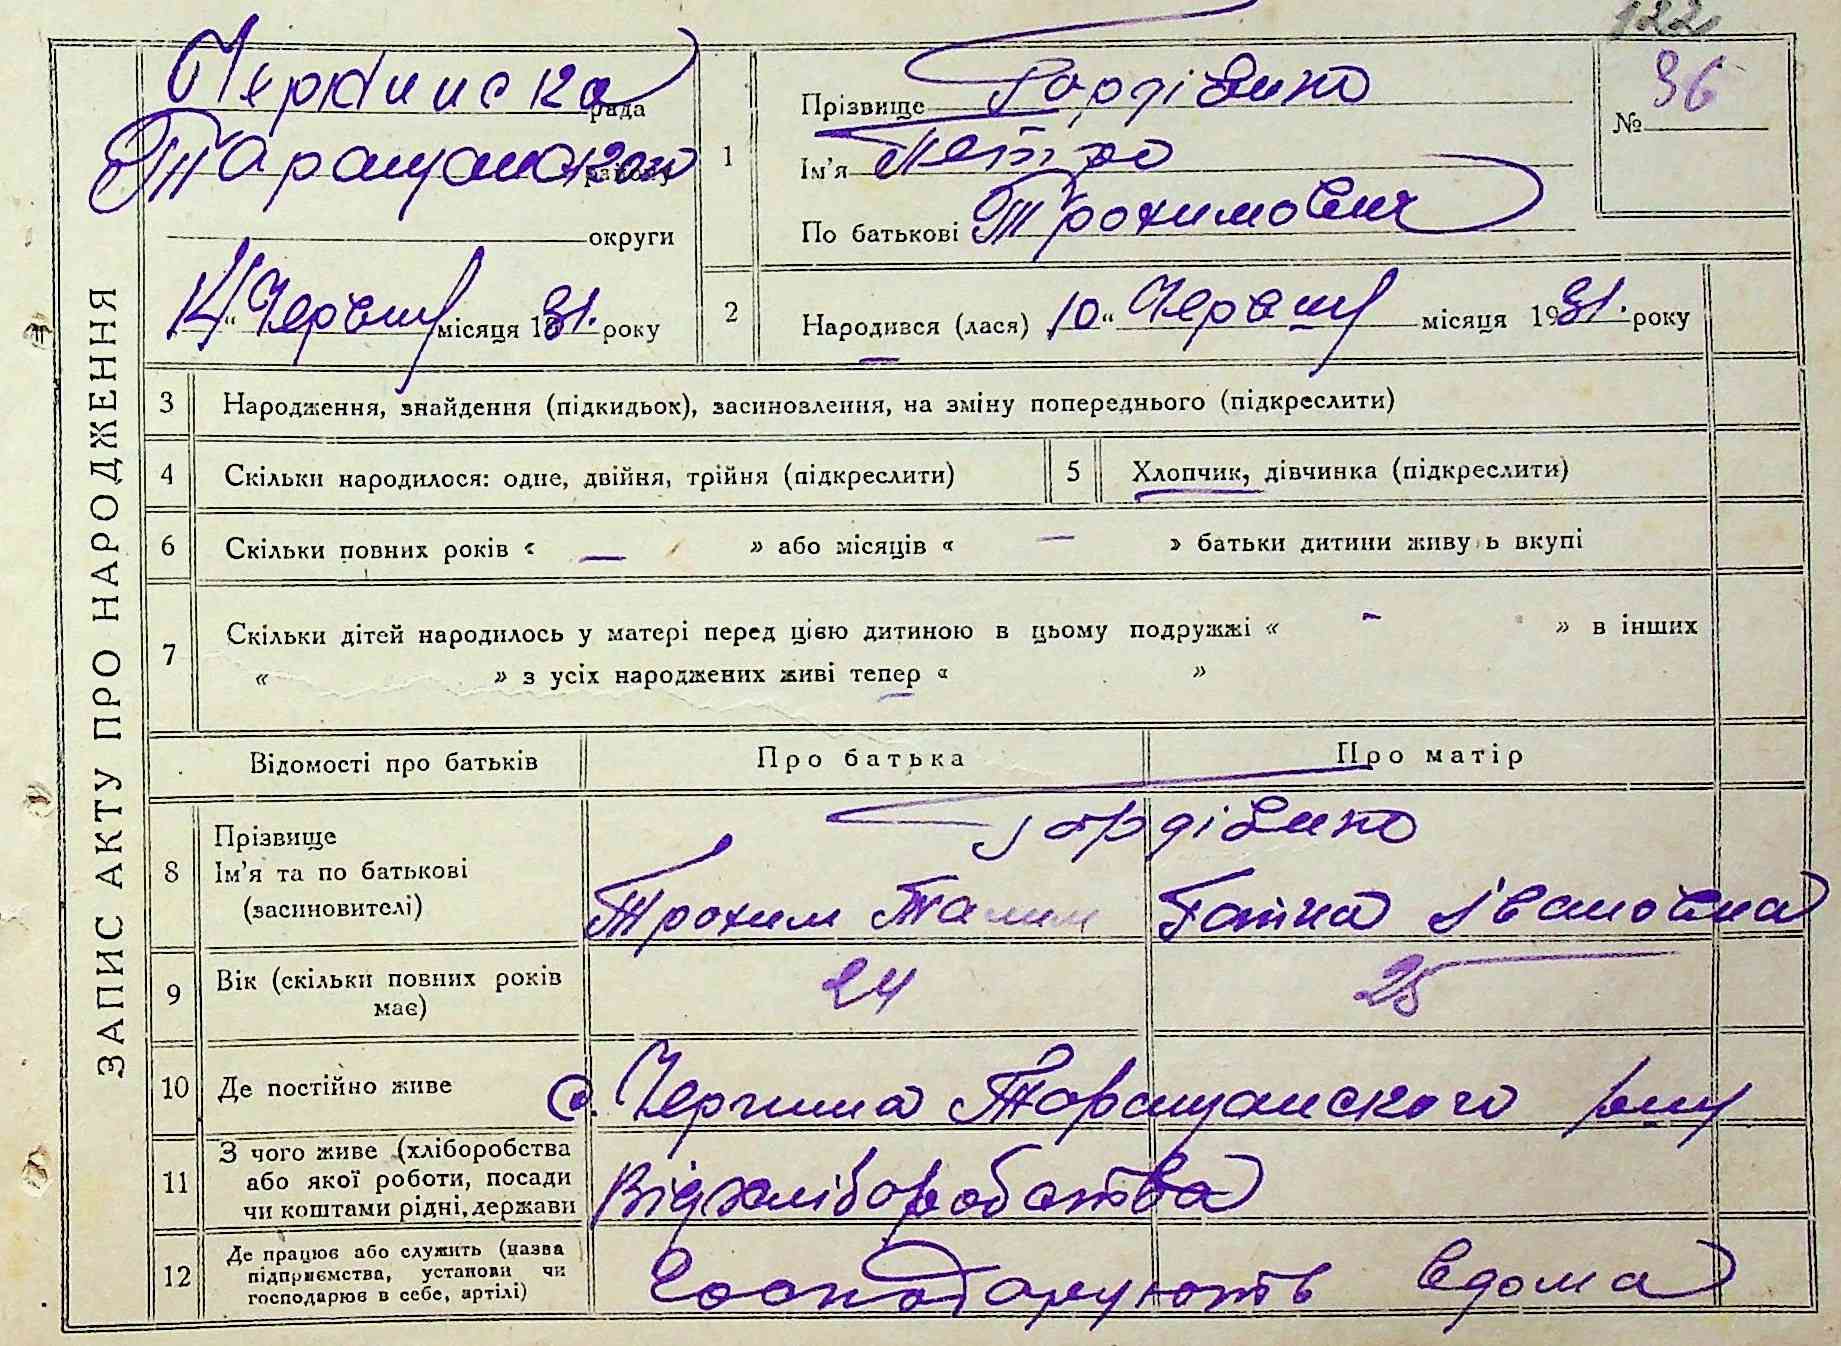 122
ЗАПИС АКТУ ПРО НАРОДЖЕННЯ
Чернинска рада
Таращанского району
округи
14 „ Червня місяця 1931. року
1
Прізвище Гордієнко
Ім'я Петро
По батькові Трохимович
№ 36
2
Народився (лася) 10 “ Червня місяця 1931. року
3 Народження, знайдення (підкидьок), засиновлення, на зміну попереднього (підкреслити)
4 Скільки народилося: одне, двійня, трійня (підкреслити)
5 Хлопчик, дівчинка (підкреслити)
6 Скільки повних років « — » або місяців « — » батьки дитини живуть вкупі
7 Скільки дітей народилось у матері перед цією дитиною в цьому подружжі « - » в інших
« » з усіх народжених живі тепер « »
Відомості про батьків Про батька Про матір
8 Прізвище
Ім'я та по батькові
(засиновителі)
Гордієнко
Трохим Ганна Івановна
9 Вік (скільки повних років
має)
24 25
10 Де постійно живе с. Чернина Таращанского р-ну
11 З чого живе (хліборобства
або якої роботи, посади
чи коштами рідні, держави
Від хліборобства
12 Де працює або служить (назва
підприємства, установи чи
господарює в себе, артілі)
Господарюють вдома